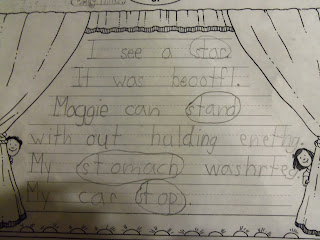 I see a star.
It was beootfl.
Maggie can stand
with out hulding enething.
My stomach washrteg.
My car stop.